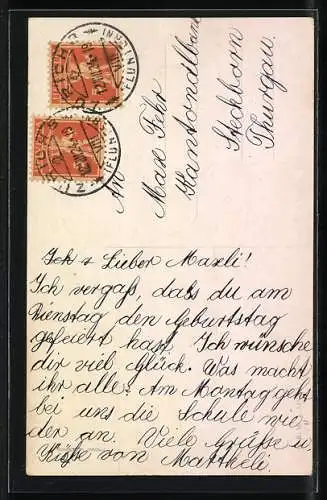 An
Max Fehr
Kantonalbank
Steckborn
Thurgau.
Lieber Maxli!
Ich vergaß, dass du am
Dienstag den Geburtstag
gefeiert hast. Ich wünsche
dir viel Glück. Was macht
ihr alle. Am Montag geht
bei uns die Schule wie-
der an. Viele Grüße u
Küße von Mattheli.